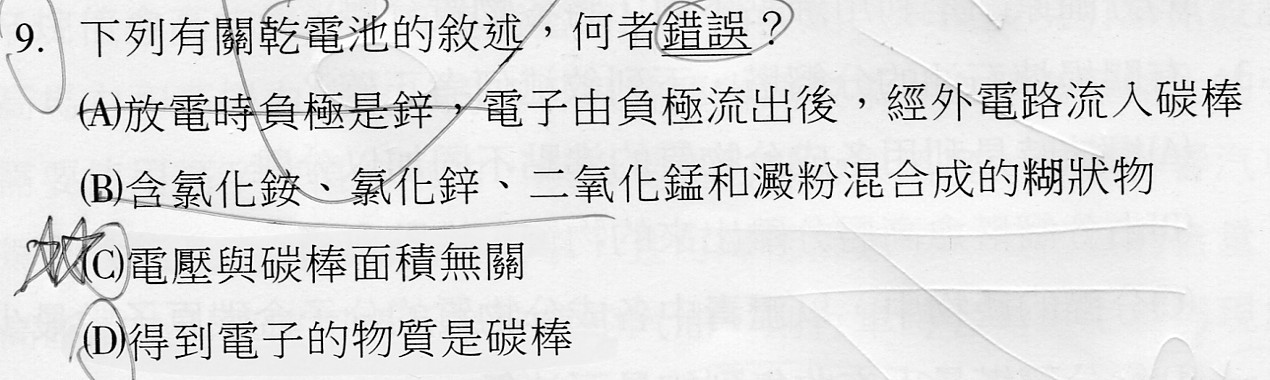 9. 下列有關乾電池的敘述，何者錯誤？
(A)放電時負極是鋅，電子由負極流出後，經外電路流入碳棒
(B)含氯化銨、氯化鋅、二氧化錳和澱粉混合成的糊狀物
(C)電壓與碳棒面積無關
(D)得到電子的物質是碳棒